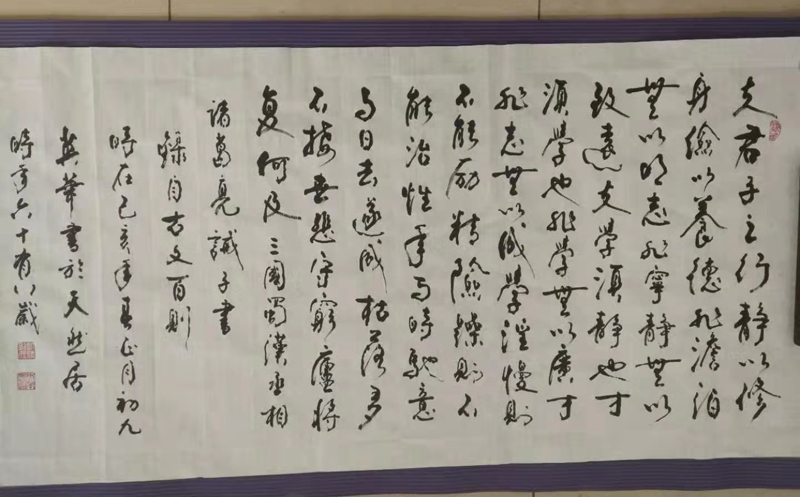 夫君子之行静以修
身俭以养德非澹泊
无以明志非宁静无以
致远夫学须静也才
须学也非学无以广才
非志无以成学淫慢则
不能励精险躁则不
能治性年与时驰意
与日去遂成枯落多
不接世悲守穷庐将
复何及三国蜀汉丞相
诸葛亮诫子书
录自古文百则
时在己亥年春正月初九
英华书于天然居
时年六十有八岁